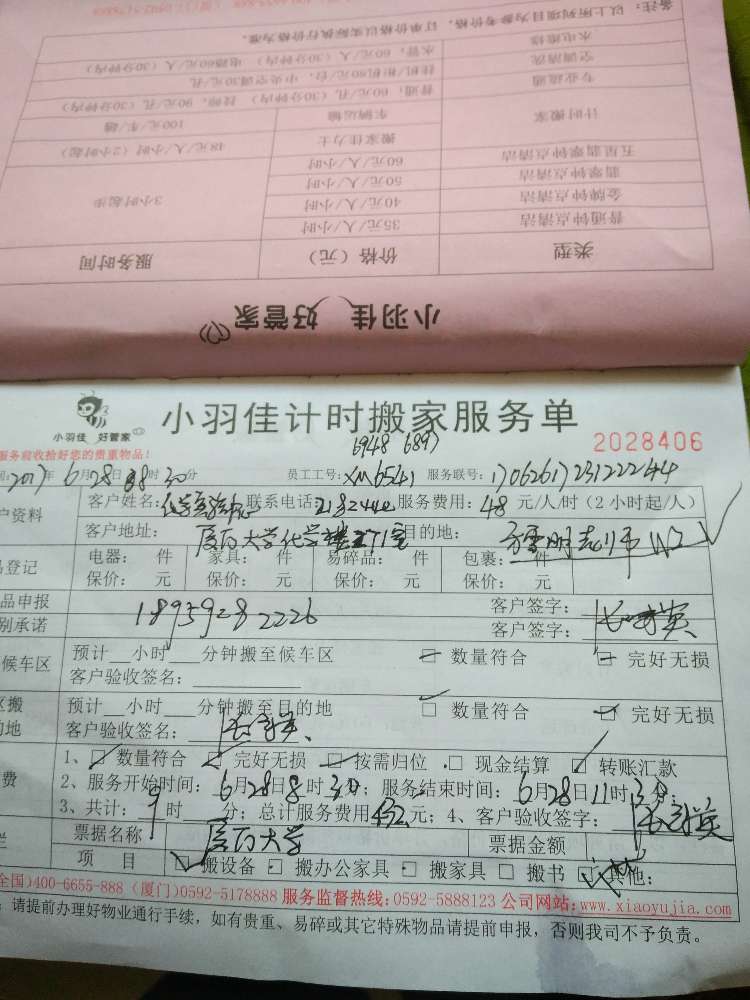 备注：以上所列项目为参考价格，订单价格以实际执行价格为准。
水电维修 水管：60元/人（30分钟内） 电路60元/人（30分钟内）
空调清洗 挂机/柜机80元/台，中央空调30元/孔
专业疏通 普通：60元/孔（30分钟内） 90元/孔（30分钟内）
计时搬家 车辆运输 100元/车/趟
搬家佳力士 48元/人/小时（2小时起）
五星翡翠钟点清洁 60元/人/小时
翡翠钟点清洁 50元/人/小时
金牌钟点清洁 40元/人/小时 3小时起步
普通钟点清洁 35元/人/小时
类型 价格（元） 服务时间
小羽佳 好管家
小羽佳 好管家
小羽佳计时搬家服务单
6948 6897
2028406
服务前收拾好您的贵重物品！
间：2017年6月28日8时30分 员工工号：XM6541 服务联号：1706261723122244
户资料 客户姓名： 联系电话：2182 服务费用：48元/人/时（2小时起/人）
客户地址：厦门大学化学楼271室 目的地：
品登记 电器： 件 家具： 件 易碎品： 件 包裹： 件
保价： 元 保价： 元 保价： 元 保价： 元
品申报 18959282226 客户签字：
别承诺 客户签字：
候车区 预计__小时__分钟搬至候车区 数量符合 完好无损
客户验收签名：
区搬 预计__小时__分钟搬至目的地 数量符合 完好无损
的地 客户验收签名：
1、数量符合 完好无损 按需归位 现金结算 转账汇款
费 2、服务开始时间：6月28日8时30分；服务结束时间：6月28日11时30分；
3、共计：9时__分；总计服务费用432元；4、客户验收签字：
栏 票据名称 厦门大学 票据金额
项 目 搬设备 搬办公家具 搬家具 搬书 其他：
全国)400-6655-888 (厦门)0592-5178888 服务监督热线:0592-5888123 公司网站:www.xiaoyujia.com
：请提前办理好物业通行手续，如有贵重、易碎或其它特殊物品请提前申报，否则我司不予负责。